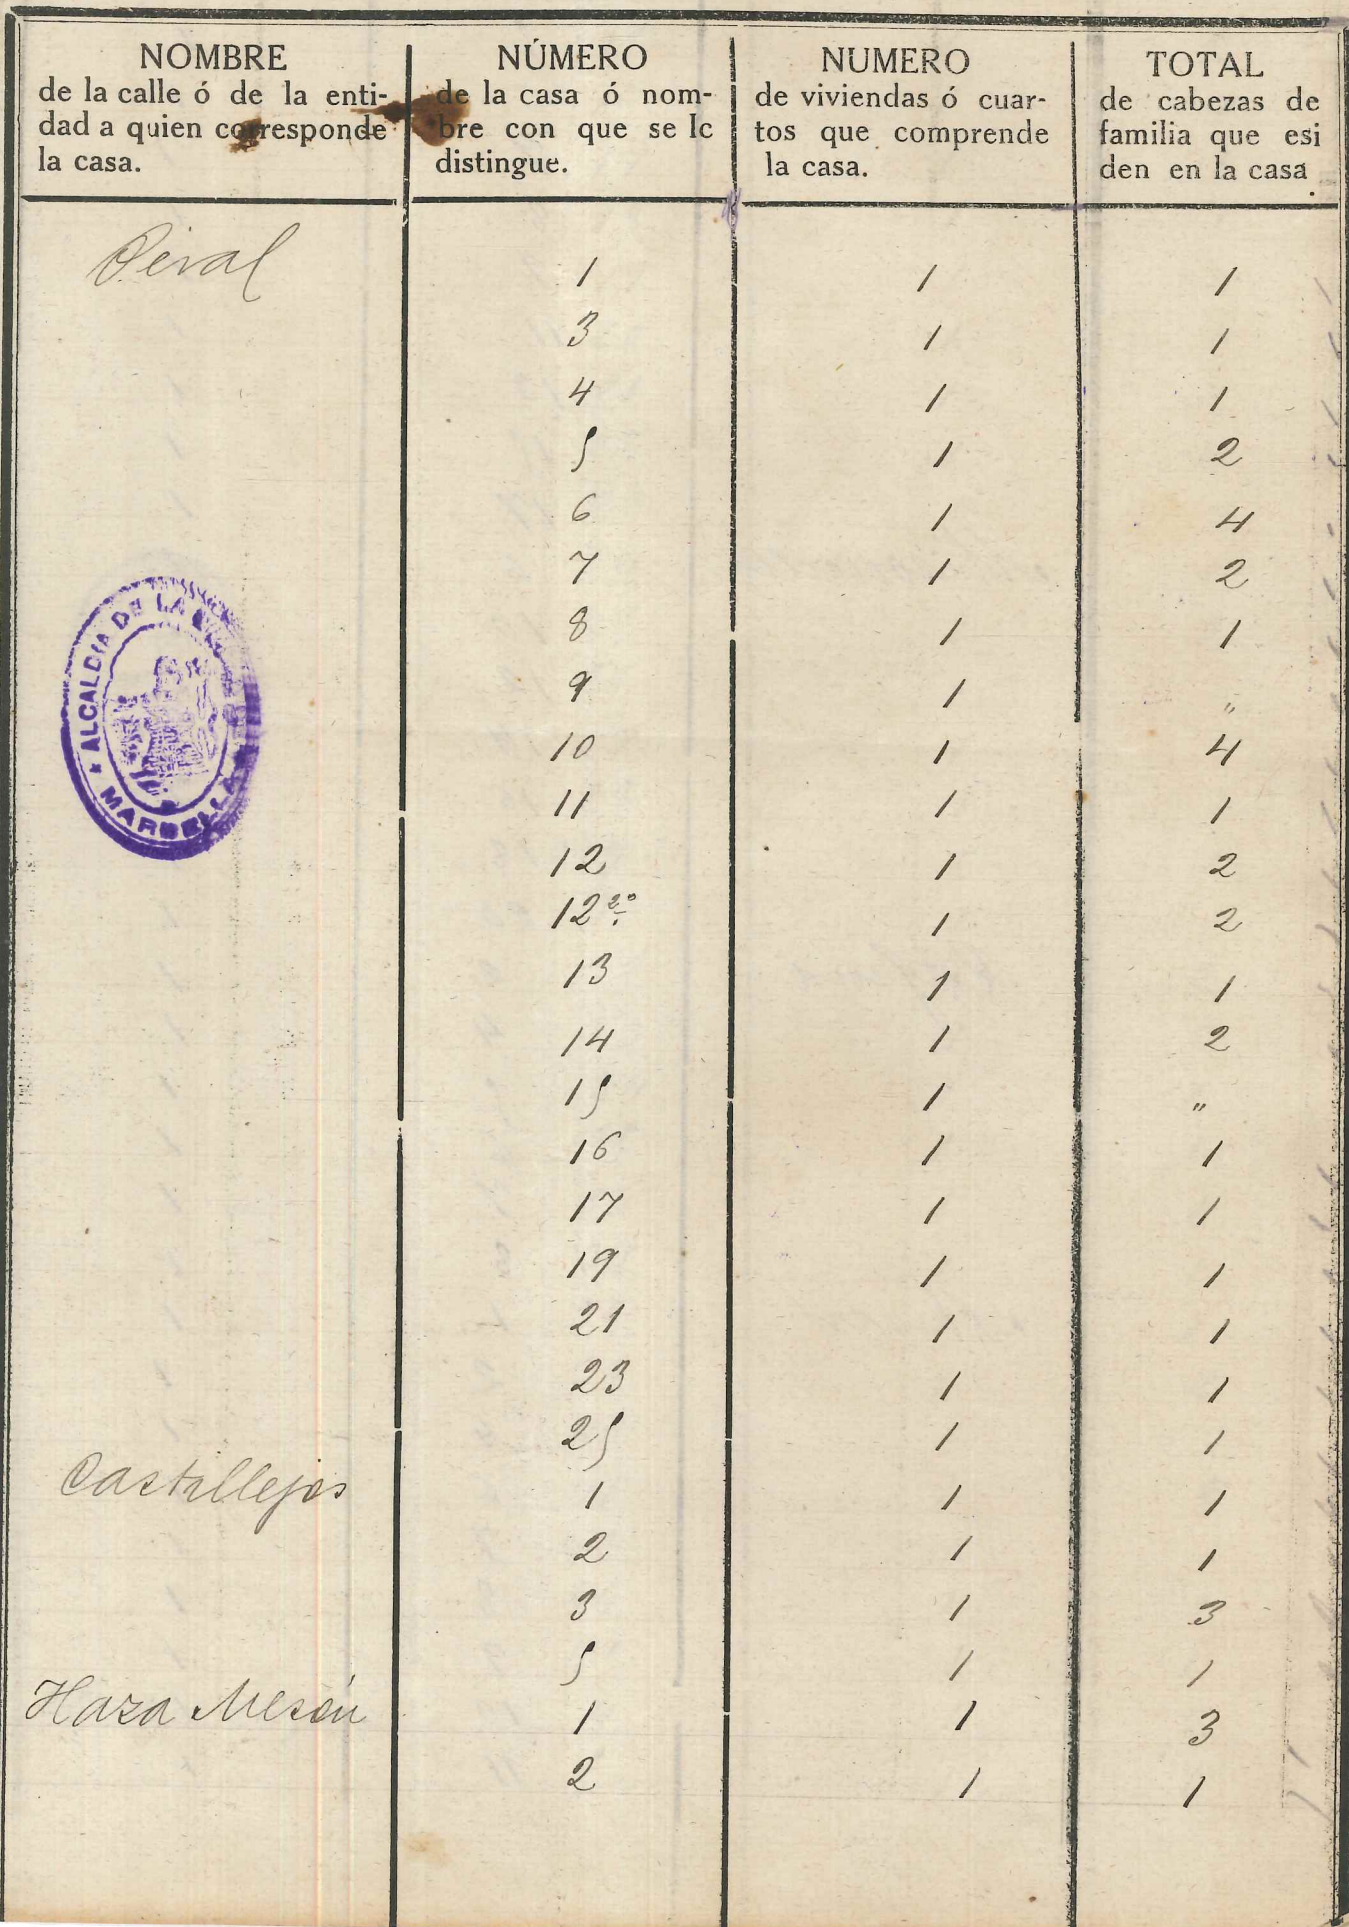 NOMBRE
de la calle ó de la enti-
dad a quien corresponde
la casa.
NÚMERO
de la casa ó nom-
bre con que se lc
distingue.
NUMERO
de viviendas ó cuar-
tos que comprende
la casa.
TOTAL
de cabezas de
familia que esi
den en la casa
Peral 1 1 1
3 1 1
4 1 1
5 1 2
6 1 4
7 1 2
8 1 1
9 1 "
10 1 4
11 1 1
12 1 2
12 2º 1 2
13 1 1
14 1 2
15 1 "
16 1 1
17 1 1
19 1 1
21 1 1
23 1 1
25 1 1
Castillejos 1 1 1
2 1 1
3 1 3
5 1 1
Haza Mesón 1 1 3
2 1 1
ALCALDIA DE LA
MARBELLA